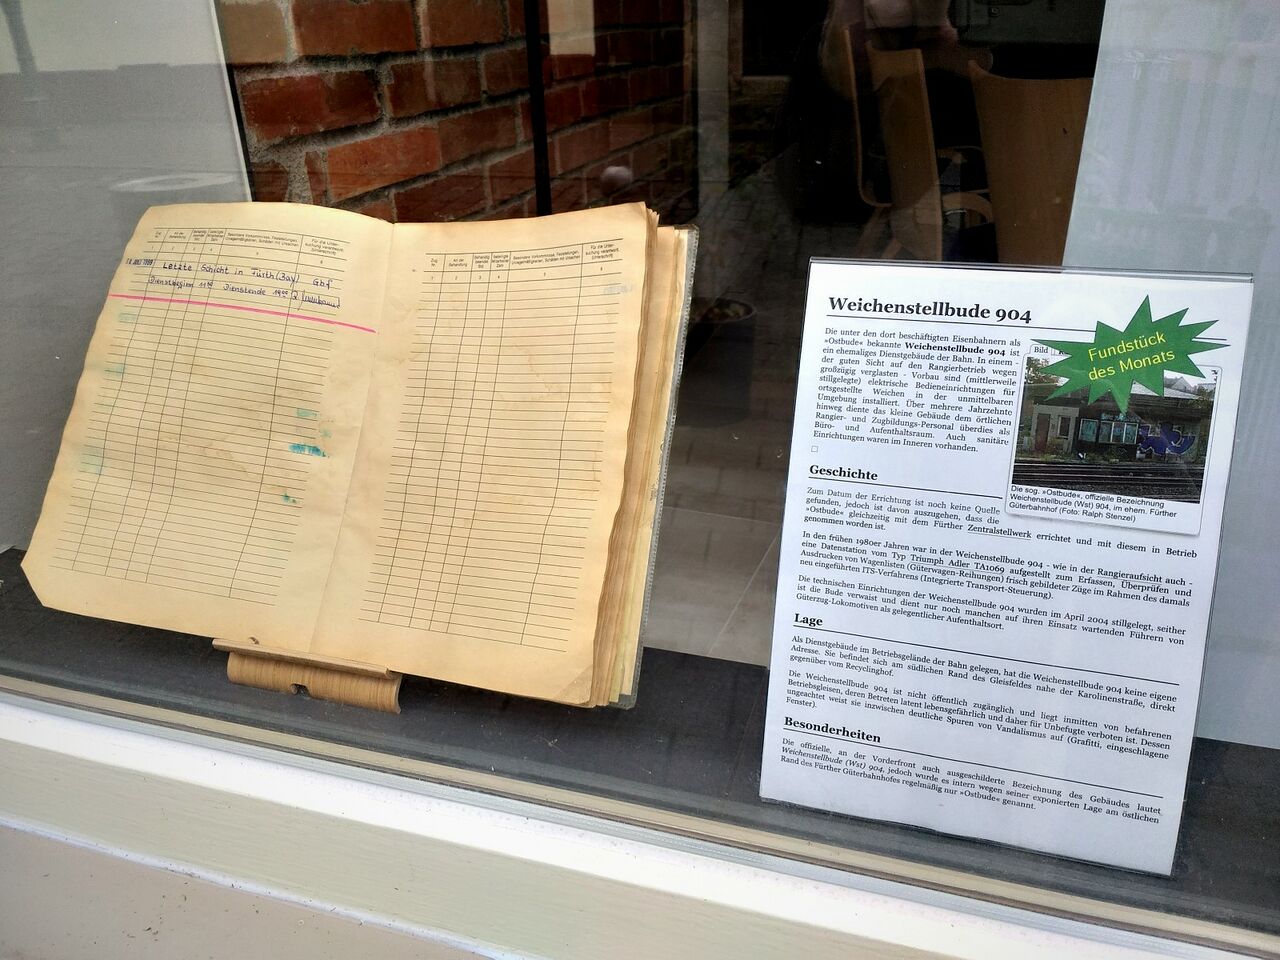 Zug Nr.
Art der Behandlung
1
2
3
4
5
6
Letzte Schicht in Fürth (Bay) Gbf
Dienstbeginn 11⁰⁰ Dienstende 19⁰⁰
Zug Nr.
Art der Behandlung
1
2
3
4
5
6
Weichenstellbude 904
Die unter den dort beschäftigten Eisenbahnern als
»Ostbude« bekannte Weichenstellbude 904 ist
ein ehemaliges Dienstgebäude der Bahn. In einem -
der guten Sicht auf den Rangierbetrieb wegen
großzügig verglasten - Vorbau sind (mittlerweile
stillgelegte) elektrische Bedieneinrichtungen für
ortsgestellte Weichen in der unmittelbaren
Umgebung installiert. Über mehrere Jahrzehnte
hinweg diente das kleine Gebäude dem örtlichen
Rangier- und Zugbildungs-Personal überdies als
Büro- und Aufenthaltsraum. Auch sanitäre
Einrichtungen waren im Inneren vorhanden.
Bild
Fundstück
des Monats
Die sog. »Ostbude«, offizielle Bezeichnung
Weichenstellbude (Wst) 904, im ehem. Fürther
Güterbahnhof (Foto: Ralph Stenzel)
Geschichte
Zum Datum der Errichtung ist noch keine Quelle
gefunden, jedoch ist davon auszugehen, dass die
»Ostbude« gleichzeitig mit dem Fürther Zentralstellwerk errichtet und mit diesem in Betrieb
genommen worden ist.
In den frühen 1980er Jahren war in der Weichenstellbude 904 - wie in der Rangieraufsicht auch -
eine Datenstation vom Typ Triumph Adler TA1069 aufgestellt zum Erfassen, Überprüfen und
Ausdrucken von Wagenlisten (Güterwagen-Reihungen) frisch gebildeter Züge im Rahmen des damals
neu eingeführten ITS-Verfahrens (Integrierte Transport-Steuerung).
Die technischen Einrichtungen der Weichenstellbude 904 wurden im April 2004 stillgelegt, seither
ist die Bude verwaist und dient nur noch manchen auf ihren Einsatz wartenden Führern von
Güterzug-Lokomotiven als gelegentlicher Aufenthaltsort.
Lage
Als Dienstgebäude im Betriebsgelände der Bahn gelegen, hat die Weichenstellbude 904 keine eigene
Adresse. Sie befindet sich am südlichen Rand des Gleisfeldes nahe der Karolinenstraße, direkt
gegenüber vom Recyclinghof.
Die Weichenstellbude 904 ist nicht öffentlich zugänglich und liegt inmitten von befahrenen
Betriebsgleisen, deren Betreten latent lebensgefährlich und daher für Unbefugte verboten ist. Dessen
ungeachtet weist sie inzwischen deutliche Spuren von Vandalismus auf (Grafitti, eingeschlagene
Fenster).
Besonderheiten
Die offizielle, an der Vorderfront auch ausgeschilderte Bezeichnung des Gebäudes lautet
Weichenstellbude (Wst) 904, jedoch wurde es intern wegen seiner exponierten Lage am östlichen
Rand des Fürther Güterbahnhofes regelmäßig nur »Ostbude« genannt.